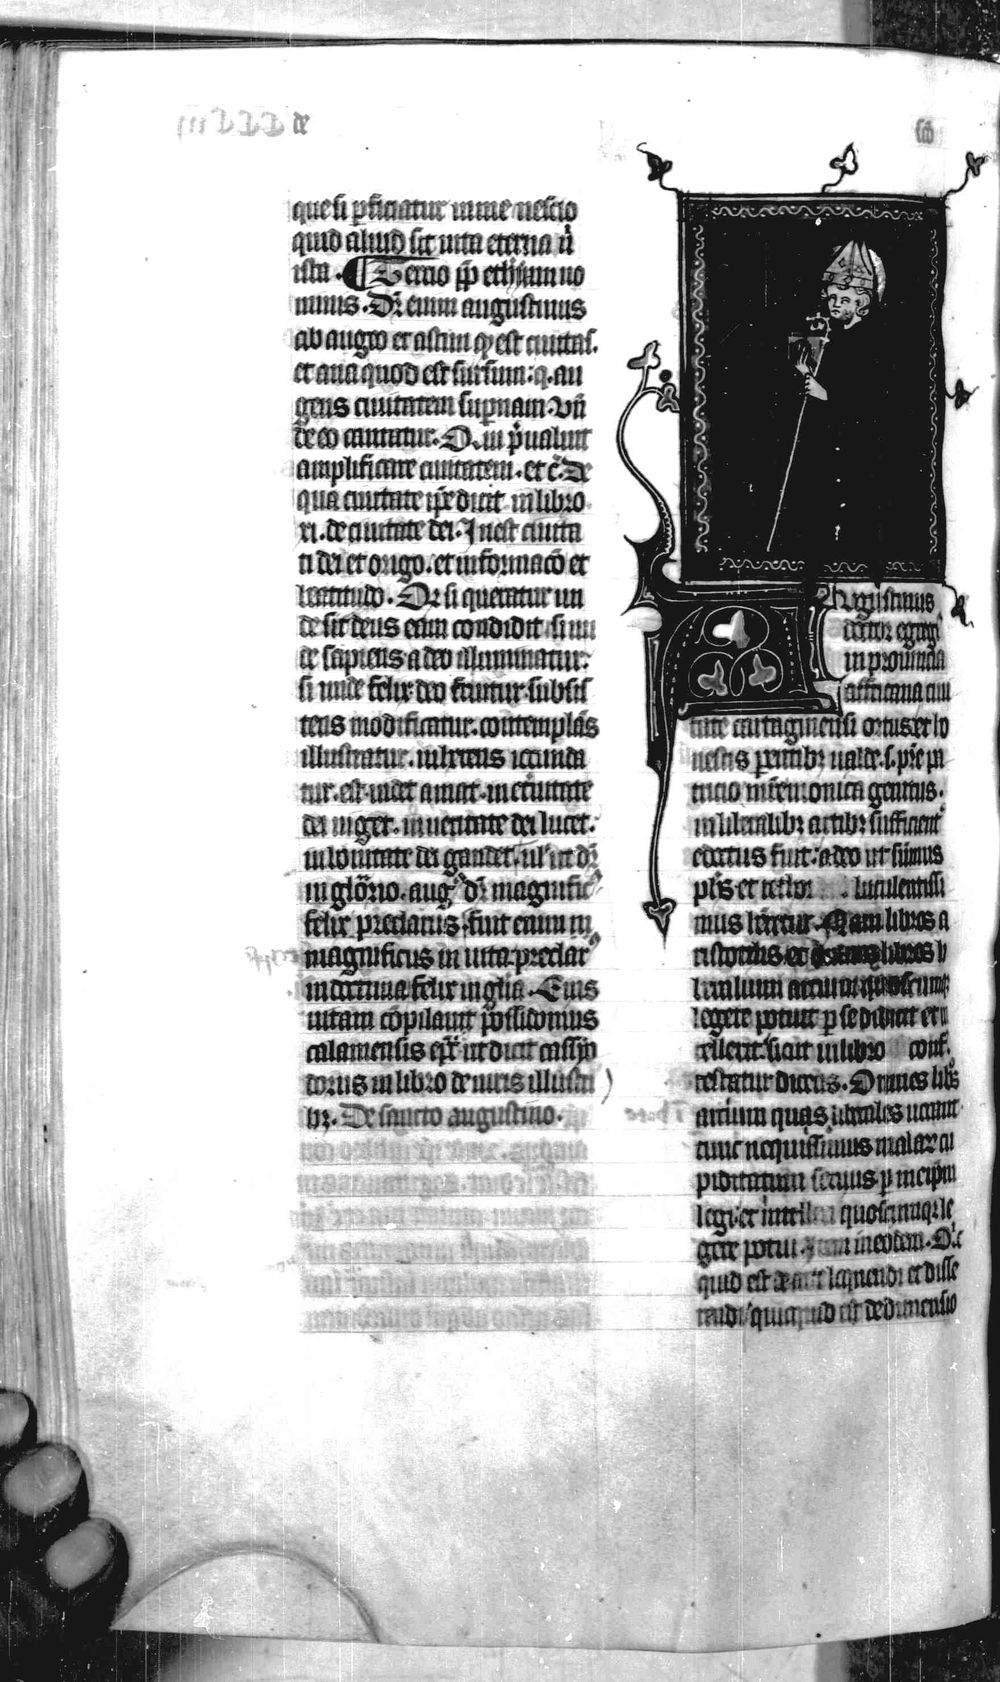 de
sc̃o
que si ꝑficiatur mime nescio
quid aliud sit uita eterna ñ
ista. ¶ Tercio ꝓp̃ ethym no
minis. Dr̃ enim augustinus
ab augeo et astin qđ est ciuitas.
et ana quod est sursum. q. au
gens ciuitatem suꝑnam. Vñ
de eo cantatur. Q. in p̃ualuit
amplificare ciuitatem. et c̃. De
qua ciuitate ip̃e dicit in libro
xi. de ciuitate dei. Inest ciuita
ti dei et origo. et informac̃o et
beatitudo. Or si queratur un
de sit deus eam condidit. si un
de sapiens a deo illuminatur.
si unde felix deo fruitur. subsis
tens modificatur. contemplãs
illustratur. inherens iocunda
tur. est. uidet. amat. in et̃nitate
dei uiget. in ueritate dei lucet.
in bonitate dei gaudet. ul' ut dr̃
in glõrio. aug9 dr̃ magnific9
felix preclarus. fuit enim in
magnificus in uita. preclar9
in doctrina felix in gl̃ia. Eius
uitam cõpilauit possidonius
calamensis ep̃s ut dicit cassyo
dorus in libro de uiris illustri
bꝫ. De sancto augustino.
Augustinus
doctor egregi9
in prouincia
affricana ciui
tate cartaginensi ortus et ho
nestis parentibꝫ ualde. s. pr̃e pa
tricio mr̃e monica genitus.
in liberalibꝫ artibꝫ sufficient̃
edoctus fuit. adeo ut sũmus
ph̃s et rethor luculentissi
mus haberetur. Nam libros a
ristotelis et libros li
beralium artium quoscumqꝫ
legere potuit ꝑ se didicit et in
tellexit. sicut in libro conf.
testatur dicens. Omnes lib̃os
artium quas liberales uocant
tunc nequissimus malaꝝ cu
piditatum seruus ꝑ me ip̃m
legi et intellexi quoscumqꝫ le
gere potui. in eodem. Q̃c
quid est de arte loquendi et disse
rendi quicquid est de dimensio